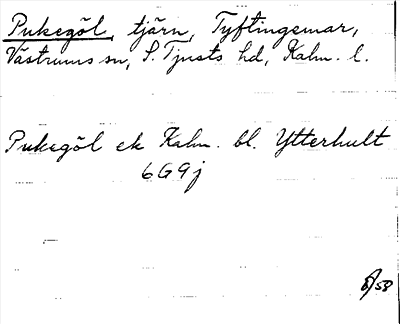 Pukegöl, tjärn, Tyftingemar,
Västrums sn, S. Tjusts hd, Kalm. l.
Pukegöl ek Kalm. bl. Ytterhult
6G9j
8/58